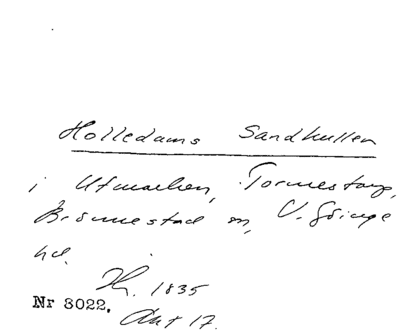 Holledams Sandkullen
i Utmarken, Tormestorp,
Brönnestad sn, V. Göinge
hd.
Th. 1835
Nr 3022. Ant 17.